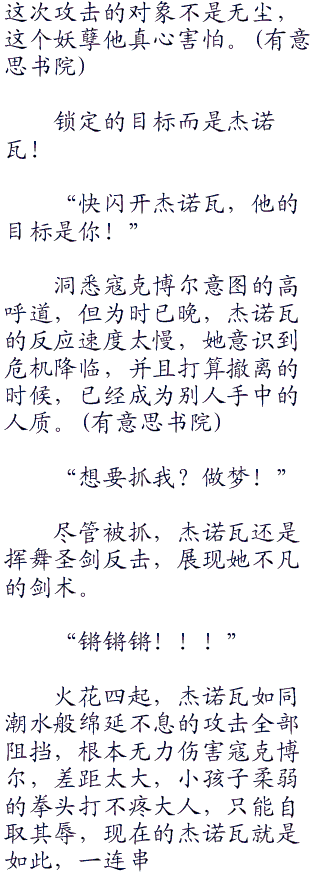 这次攻击的对象不是无尘，
这个妖孽他真心害怕。(有意
思书院)
锁定的目标而是杰诺
瓦！
“快闪开杰诺瓦，他的
目标是你！”
洞悉寇克博尔意图的高
呼道，但为时已晚，杰诺瓦
的反应速度太慢，她意识到
危机降临，并且打算撤离的
时候，已经成为别人手中的
人质。(有意思书院)
“想要抓我？做梦！”
尽管被抓，杰诺瓦还是
挥舞圣剑反击，展现她不凡
的剑术。
“锵锵锵！！！”
火花四起，杰诺瓦如同
潮水般绵延不息的攻击全部
阻挡，根本无力伤害寇克博
尔，差距太大，小孩子柔弱
的拳头打不疼大人，只能自
取其辱，现在的杰诺瓦就是
如此，一连串